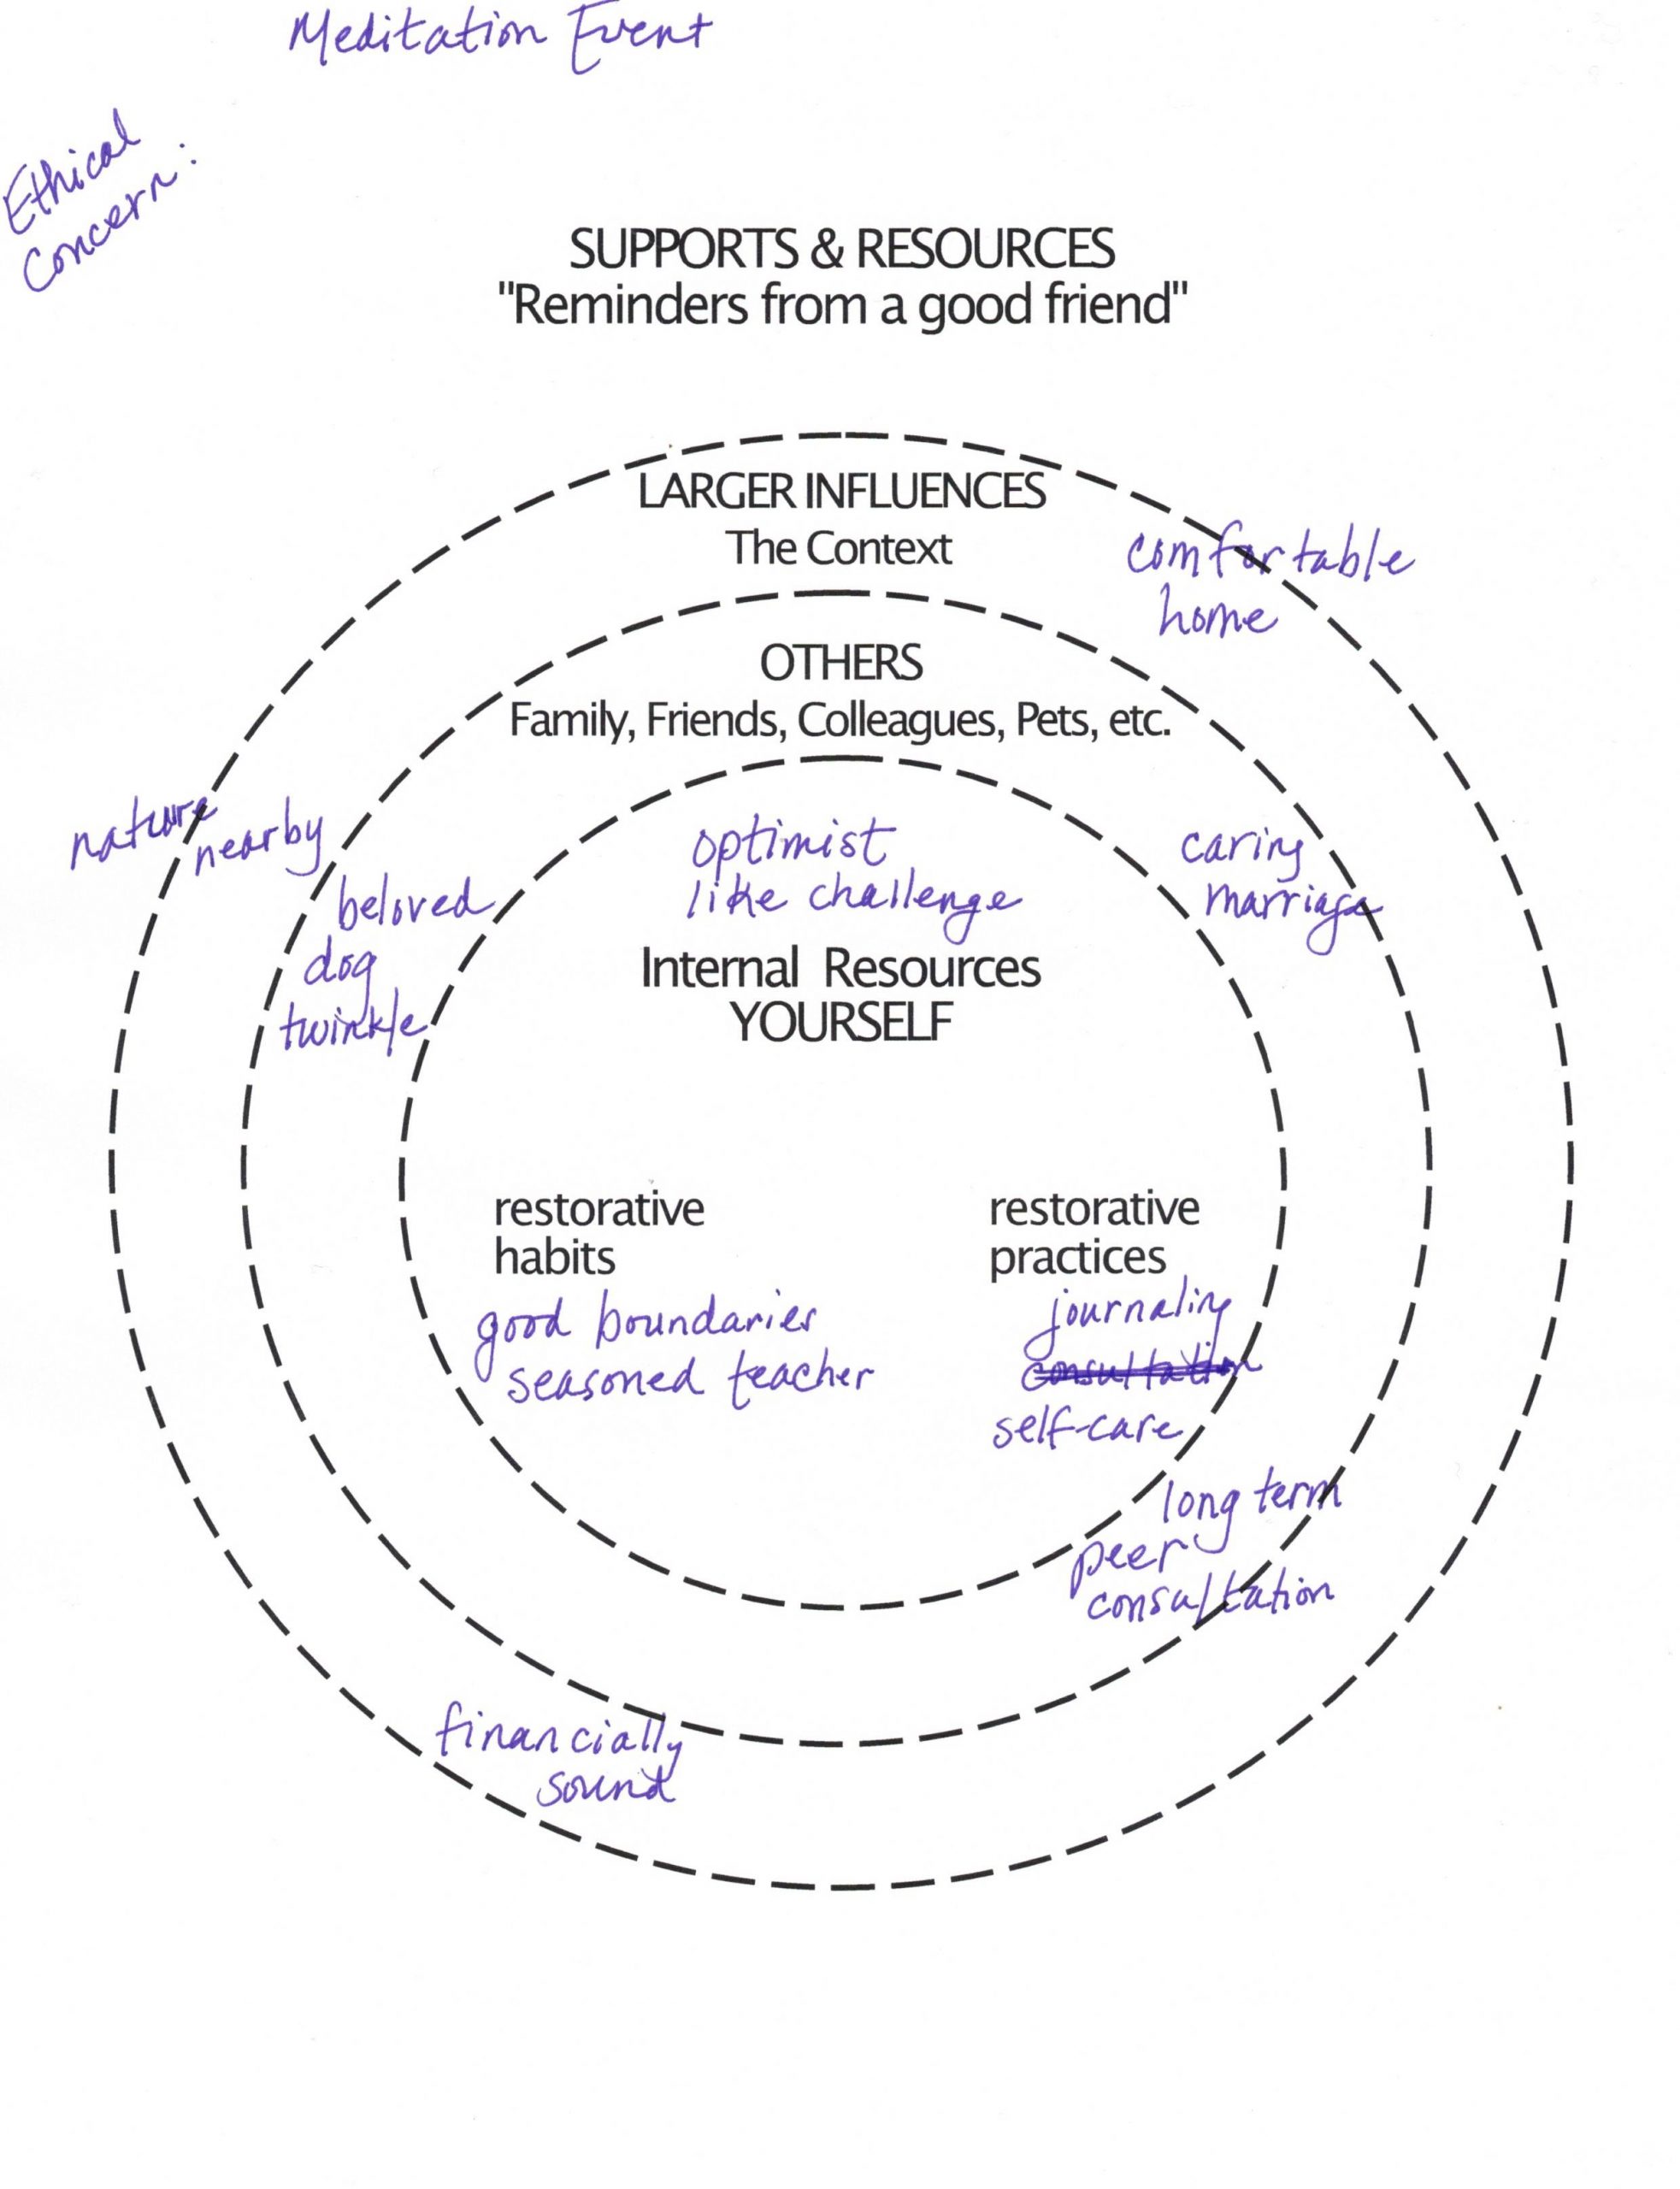 Meditation Event
Ethical
Concern:
SUPPORTS & RESOURCES
"Reminders from a good friend"
LARGER INFLUENCES
The Context
comfortable
home
OTHERS
Family, Friends, Colleagues, Pets, etc.
nature
nearby
beloved
dog
twinkle
optimist
like challenge
caring
marriage
Internal Resources
YOURSELF
restorative
habits
good boundaries
seasoned teacher
restorative
practices
journaling
consultation
self-care
long term
peer
consultation
financially
sound